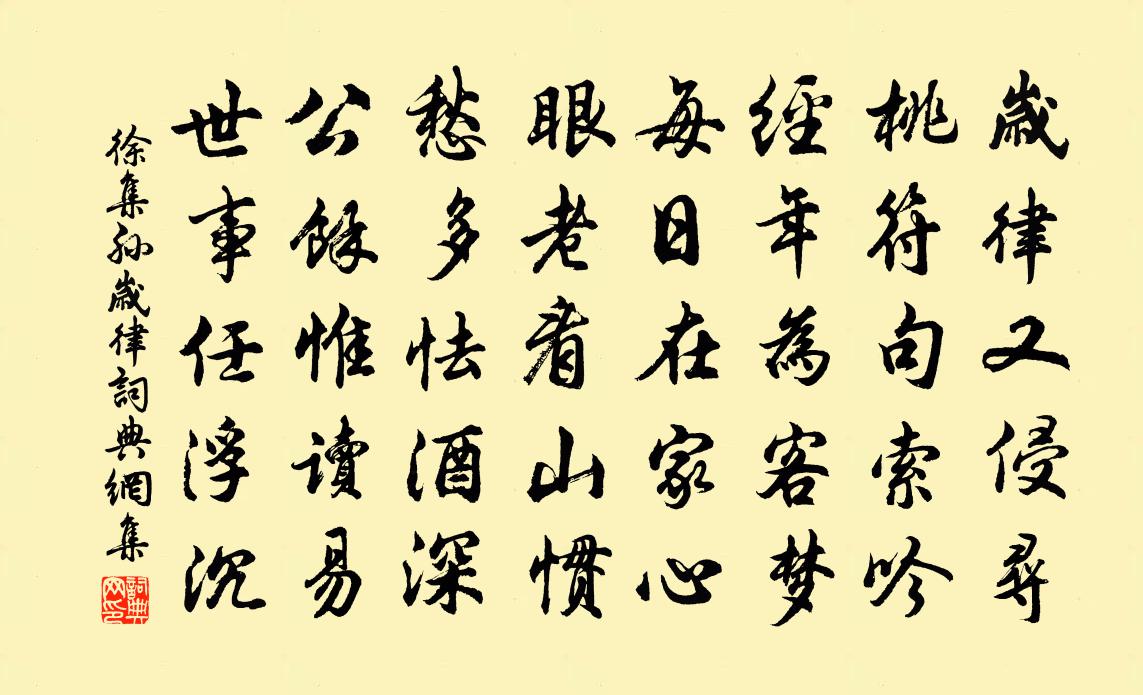 歲律又侵尋
桃符句索吟
經年為客夢
每日在家心
眼老看山慣
愁多怯酒深
公餘惟讀易
世事任浮沉
徐集孫歲律詞典網集
詞典網印